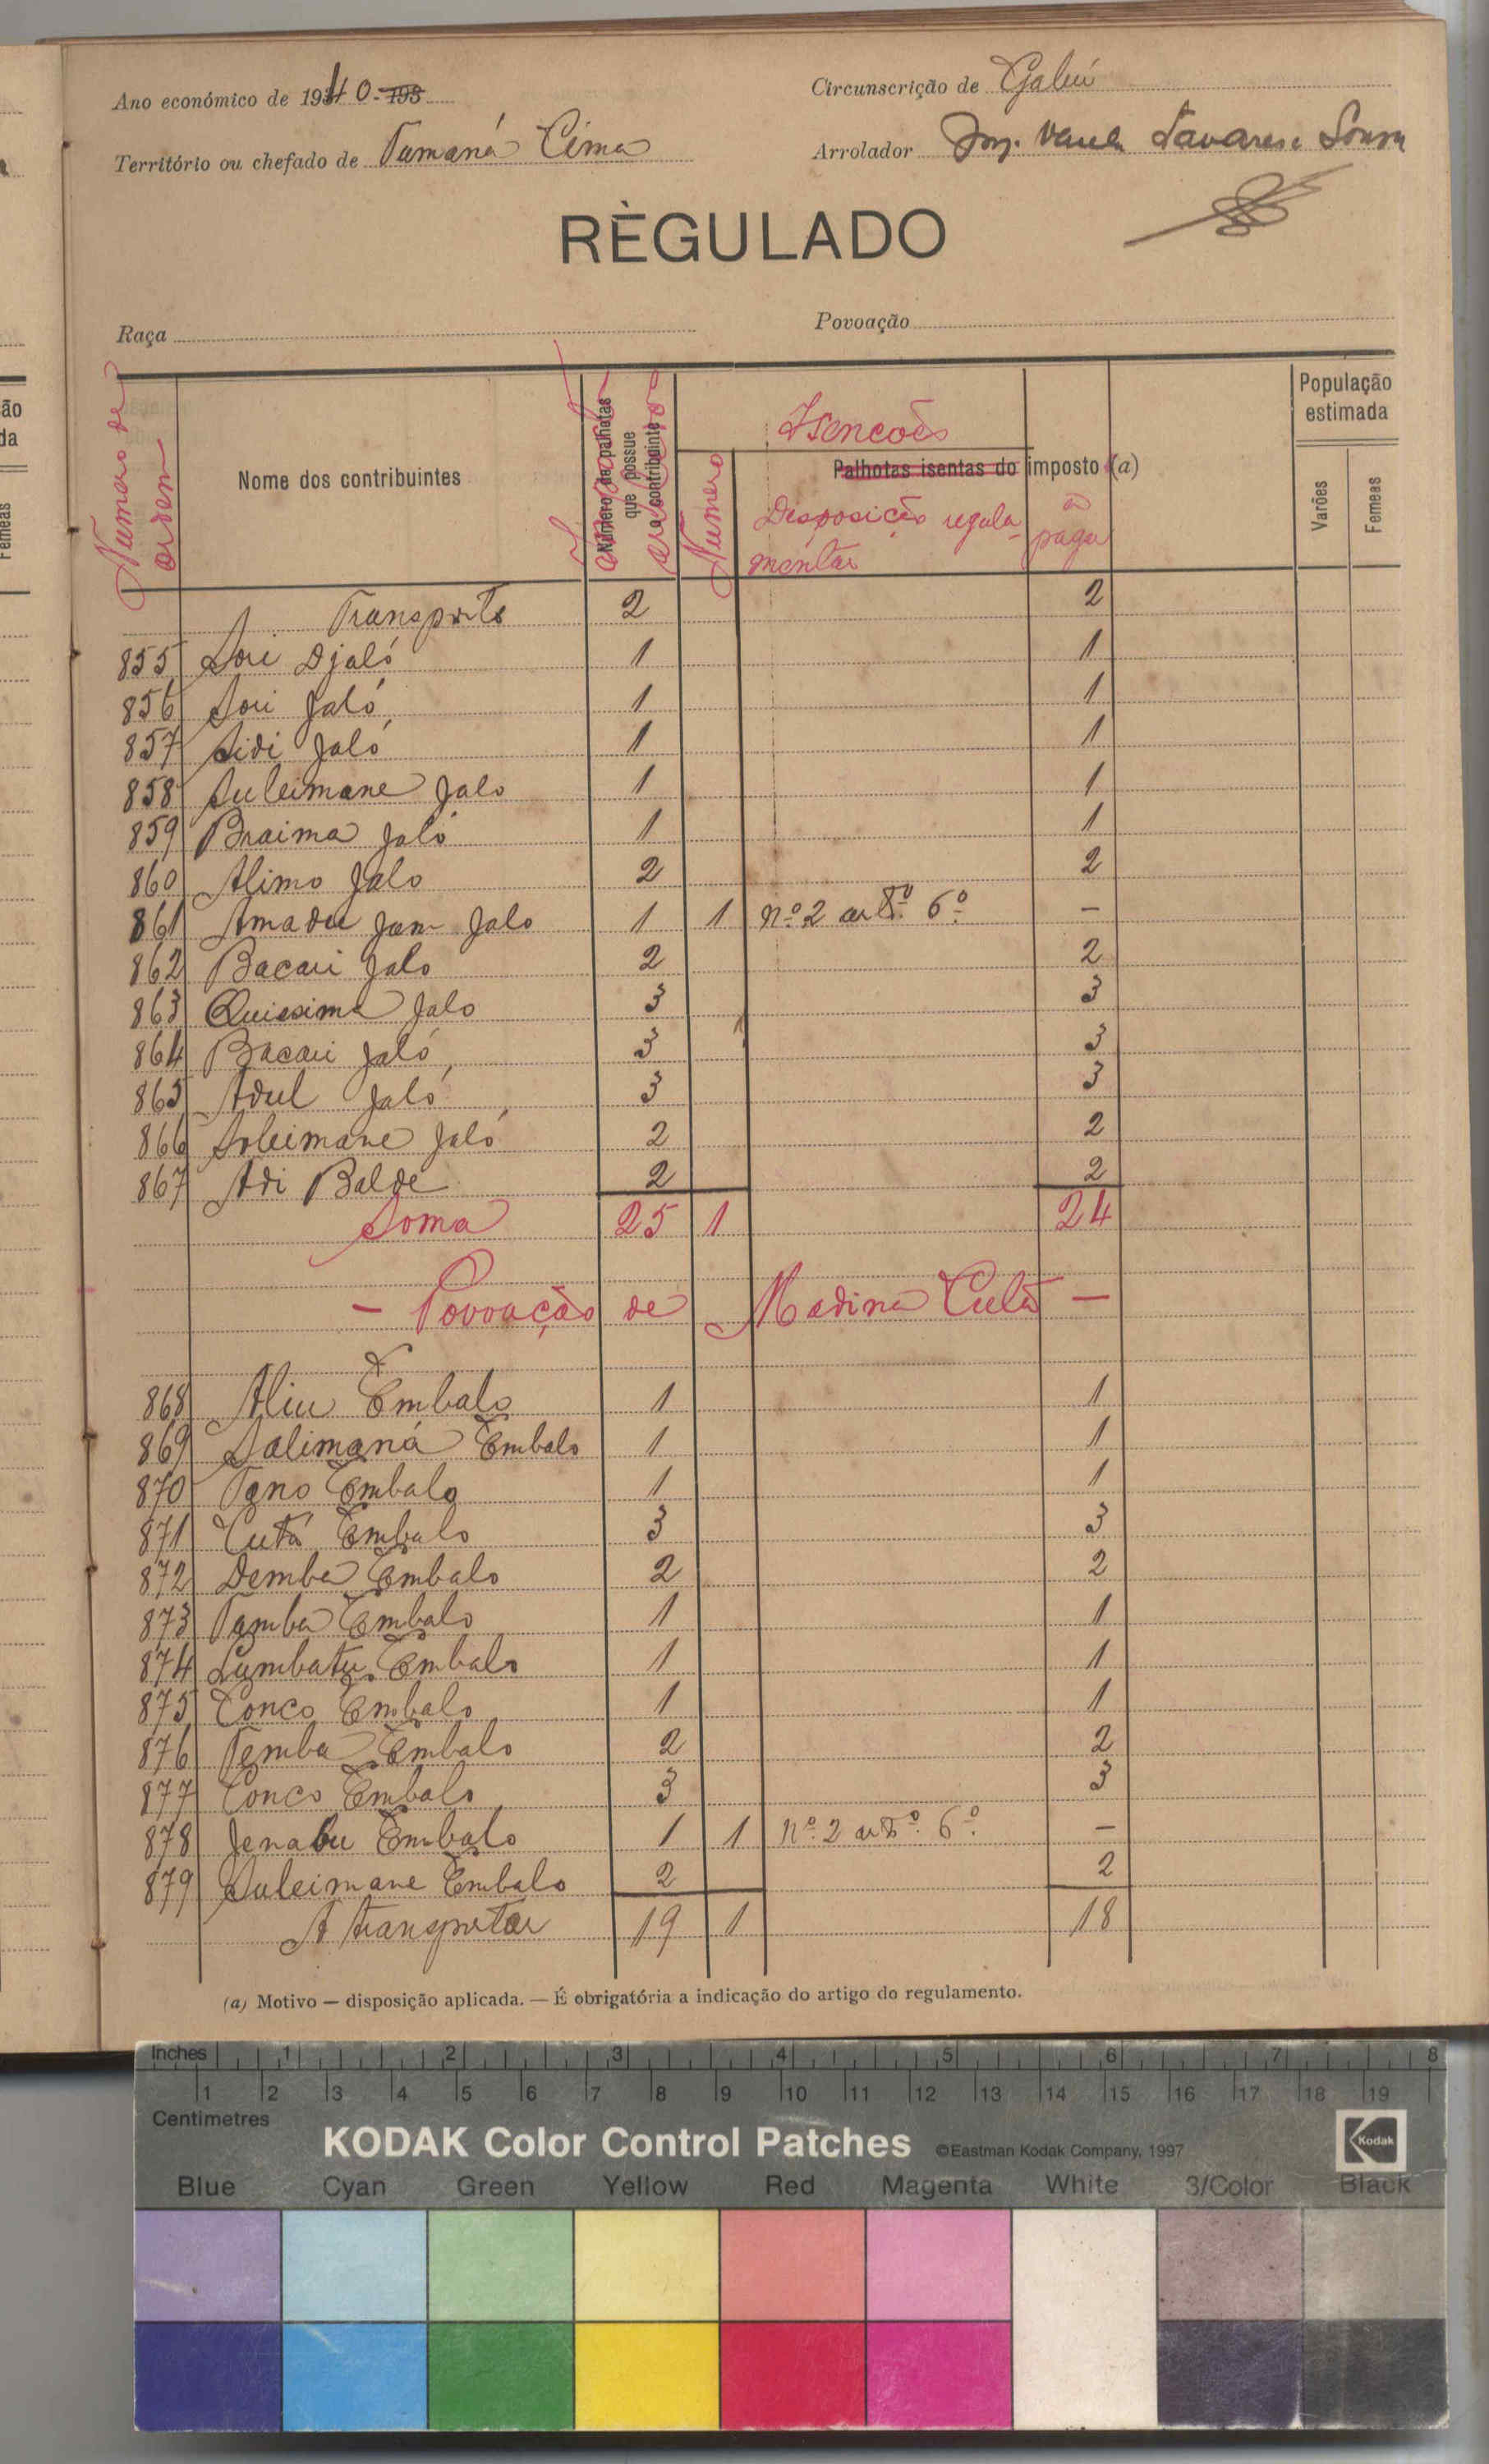 Ano económico de 1940-193
Circunscrição de Gabú
Território ou chefado de Tumaná Cima
Arrolador Tavares e Sousa
RÈGULADO
Raça
Povoação
Numero de ordem
Nome dos contribuintes
Número de palhotas que possue o contribuinte
Isencoēs
Numero
Palhotas isentas do imposto (a)
Desposição regulamentar
a paga
População estimada
Varões
Femeas
Transporte 2 2
855 Sori Djaló 1 1
856 Sori Jaló 1 1
857 Sidi Jaló 1 1
858 Suleimane Jalo 1 1
859 Braima Jaló 1 1
860 Alimo Jalo 2 2
861 Amadu Jam Jalo 1 1 nº 2 artº. 6º. —
862 Bacari Jalo 2 2
863 Quissima Jalo 3 3
864 Bacari Jaló 3 3
865 Adul Jaló 3 3
866 Soleimane Jaló 2 2
867 Adi Balde 2 2
Soma 25 1 24
— Povoação de Madina Cutá —
868 Aliu Embalo 1 1
869 Salimaná Embalo 1 1
870 Tano Embalo 1 1
871 Cutá Embalo 3 3
872 Demba Embalo 2 2
873 Samba Embalo 1 1
874 Lumbatu Embalo 1 1
875 Conco Embalo 1 1
876 Pemba Embalo 2 2
877 Conco Embalo 3 3
878 Jenabu Embalo 1 1 nº 2 artº. 6º. —
879 Suleimane Embalo 2 2
A transportar 19 1 18
(a) Motivo — disposição aplicada. — É obrigatória a indicação do artigo do regulamento.
Inches 1 2 3 4 5 6 7 8
1 2 3 4 5 6 7 8 9 10 11 12 13 14 15 16 17 18 19
Centimetres
KODAK Color Control Patches ©Eastman Kodak Company, 1997 Kodak
Blue Cyan Green Yellow Red Magenta White 3/Color Black